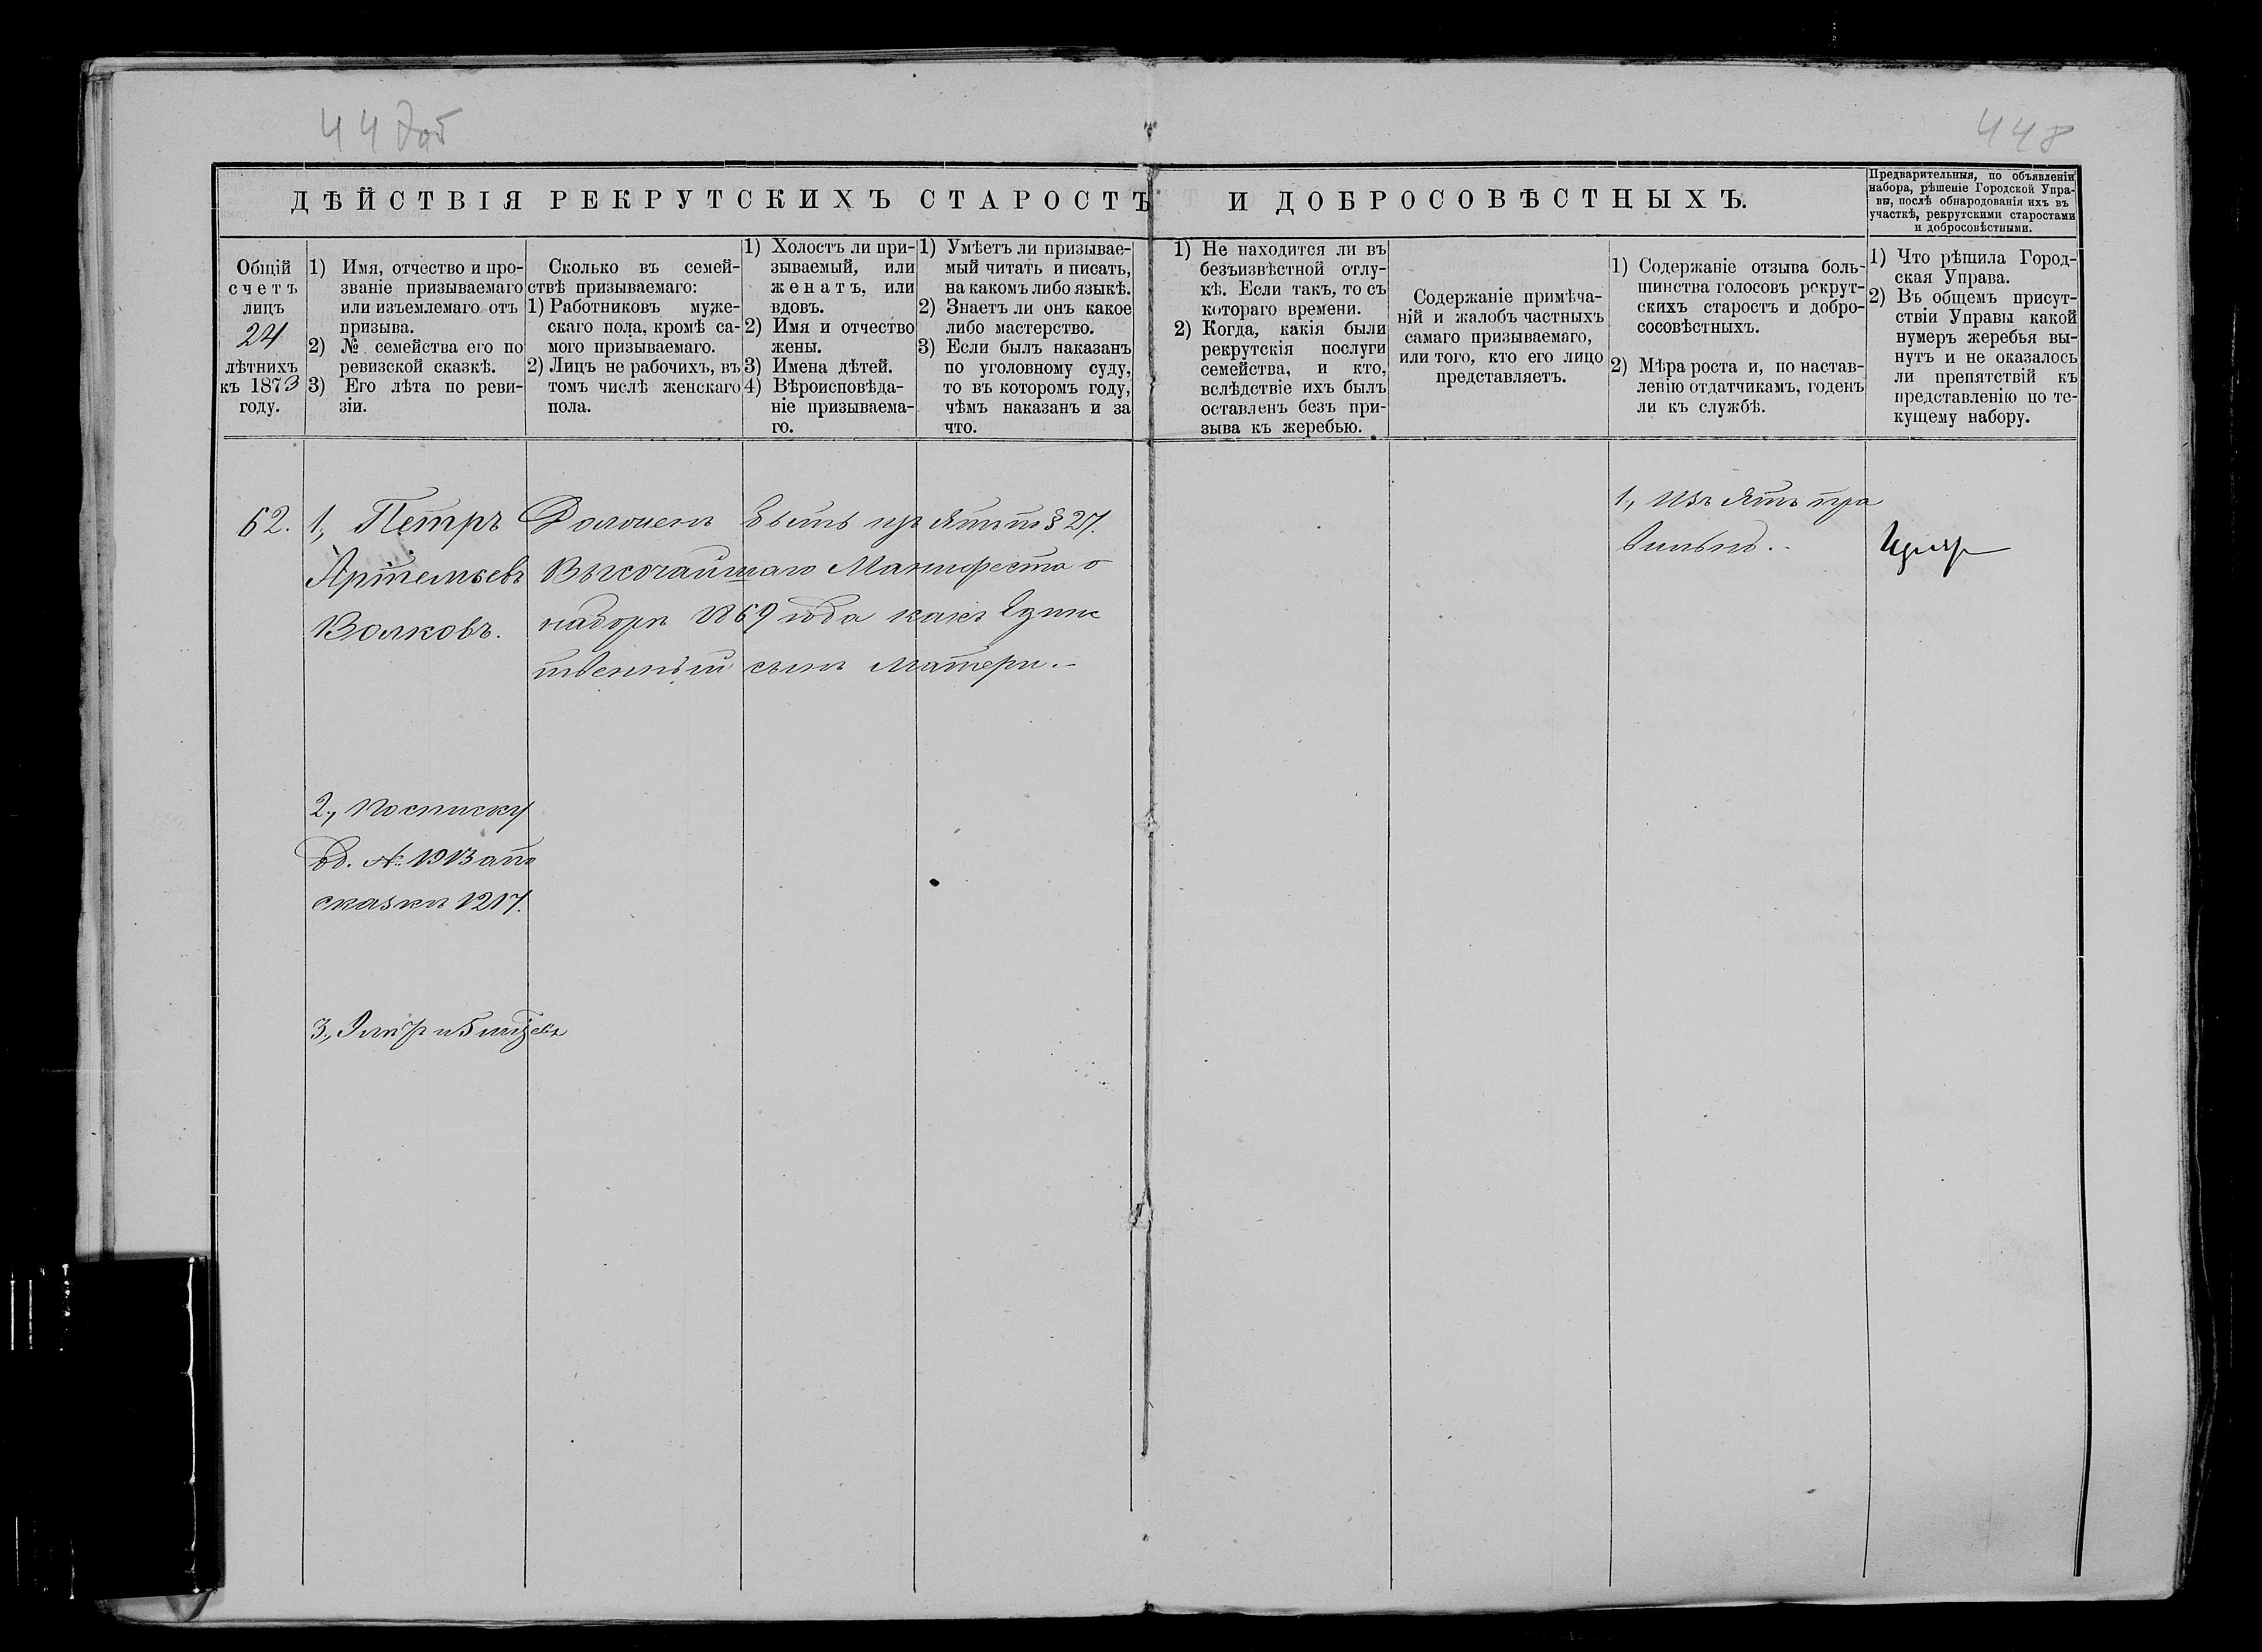 448
ДѢЙСТВІЯ РЕКРУТСКИХЪ СТАРОСТЪ И ДОБРОСОВѢСТНЫХЪ.
Предварительныя, по объявленіи
набора, рѣшеніе Городской Упра-
вы, послѣ обнародованія ихъ въ
участкѣ, рекрутскими старостами
и добросовѣстными.
Общій
счетъ
лицъ
24
лѣтнихъ
къ 1873
году.
1) Имя, отчество и про-
званіе призываемаго
или изъемлемаго отъ
призыва.
2) № семейства его по
ревизской сказкѣ.
3) Его лѣта по реви-
зіи.
Сколько въ семей-
ствѣ призываемаго:
1) Работниковъ муже-
скаго пола, кромѣ са-
мого призываемаго.
2) Лицъ не рабочихъ, въ
томъ числѣ женскаго
пола.
1) Холостъ ли при-
зываемый, или
женатъ, или
вдовъ.
2) Имя и отчество
жены.
3) Имена дѣтей.
4) Вѣроисповѣда-
ніе призываема-
го.
1) Умѣетъ ли призывае-
мый читать и писать,
на какомъ либо языкѣ.
2) Знаетъ ли онъ какое
либо мастерство.
3) Если былъ наказанъ
по уголовному суду,
то въ которомъ году,
чѣмъ наказанъ и за
что.
1) Не находится ли въ
безъизвѣстной отлу-
кѣ. Если такъ, то съ
котораго времени.
2) Когда, какія были
рекрутскія послуги
семейства, и кто,
вслѣдствіе ихъ былъ
оставленъ безъ при-
зыва къ жеребью.
Содержаніе примѣча-
ній и жалобъ частныхъ
самаго призываемаго,
или того, кто его лицо
представляетъ.
1) Содержаніе отзыва боль-
шинства голосовъ рекрут-
скихъ старостъ и добро-
сосовѣстныхъ.
2) Мѣра роста и, по настав-
ленію отдатчикамъ, годенъ
ли къ службѣ.
1) Что рѣшила Город-
ская Управа.
2) Въ общемъ присут-
ствіи Управы какой
нумеръ жеребья вы-
нутъ и не оказалось
ли препятствій къ
представленію по те-
кущему набору.
62.
1, Петръ
Артемьевъ
Волковъ.
Долженъ быть изъятъ по § 27.
Высочайшаго Манифеста о
наборѣ 1869 года какъ Един
ственный сынъ матери.
1, Изъятъ пра
вильно.
2, По списку
об. №
сказкѣ 1217.
3,